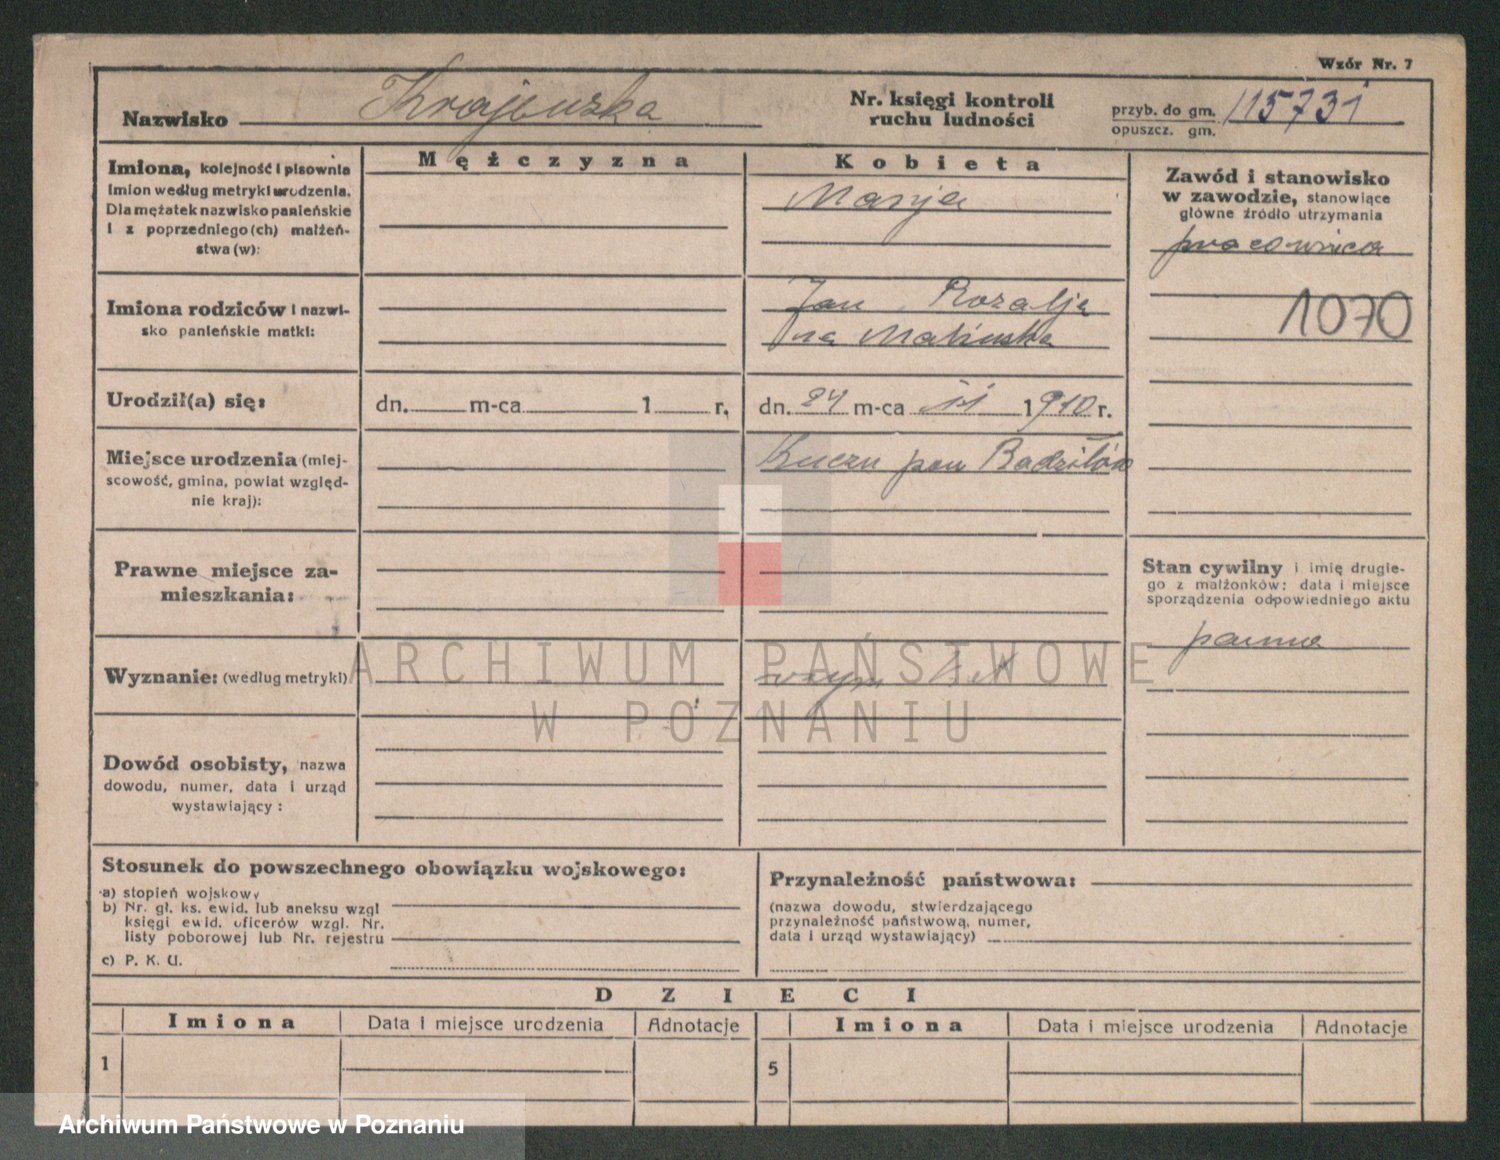 Wzór Nr. 7
Nazwisko Krajewska
Nr. księgi kontroli
ruchu ludności
przyb. do gm. 115731
opuszcz. gm.
Mężczyzna Kobieta
Imiona, kolejność i pisownia
imion według metryki urodzenia.
Dla mężatek nazwisko panieńskie
i z poprzedniego (ch) małżeń-
stwa (w):
Marja
Zawód i stanowisko
w zawodzie, stanowiące
główne źródło utrzymania
pracownica
1070
Imiona rodziców i nazwi-
sko panieńskie matki:
Jan, Rozalja
Urodził(a) się:
dn. m-ca 1 r.
dn. 24 m-ca 11 1910 r.
Miejsce urodzenia (miej-
scowość, gmina, powiat względ-
nie kraj):
pow
Prawne miejsce za-
mieszkania:
Stan cywilny i imię drugie-
go z małżonków; data i miejsce
sporządzenia odpowiedniego aktu
panna
Wyznanie: (według metryki)
rzym
Dowód osobisty, nazwa
dowodu, numer, data i urząd
wystawiający:
ARCHIWUM PAŃSTWOWE
W POZNANIU
Stosunek do powszechnego obowiązku wojskowego:
a) stopień wojskowy
b) Nr. gł. ks. ewid. lub aneksu wzgl
księgi ewid. oficerów wzgl. Nr.
listy poborowej lub Nr. rejestru
c) P. K. U.
Przynależność państwowa:
(nazwa dowodu, stwierdzającego
przynależność państwową, numer,
data i urząd wystawiający)
DZIECI
Imiona Data i miejsce urodzenia Adnotacje Imiona Data i miejsce urodzenia Adnotacje
1 5
Archiwum Państwowe w Poznaniu